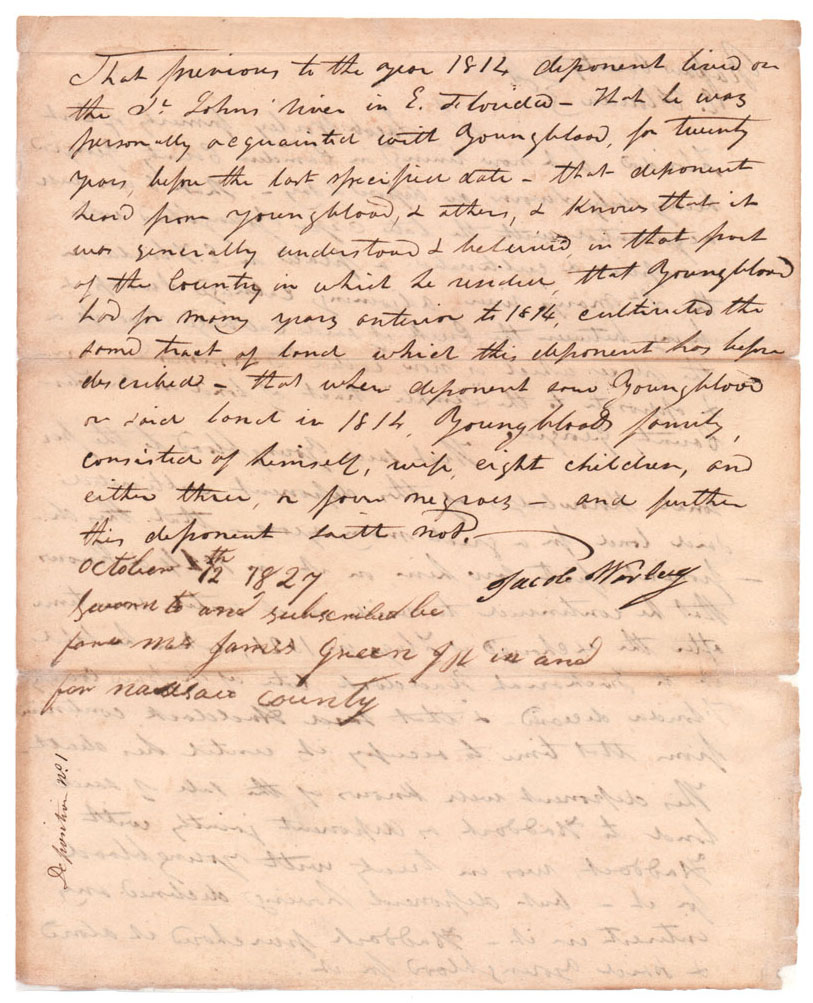 That previous to the year 1814 deponent lived on
the St. Johns river in E. Florida – that he was
personally acquainted with Youngblood, for twenty
years, before the last specified date – that deponent
heard from Youngblood, & others, & knows that it
was generally understood & believed, in that part
of the Country in which he resided, that Youngblood
had for many years anterior to 1814, cultivated the
same tract of land which this deponent has before
described – that when deponent saw Youngblood
on said land in 1814, Youngbloods family,
consisted of himself, wife, eight children, and
either three, or four negroes – and further
this deponent saith not.
October 12th 1827 Jacob Worley
Sworn to and subscribed be
fore me James Green J P in and
for nassau county
Deposition No. 1